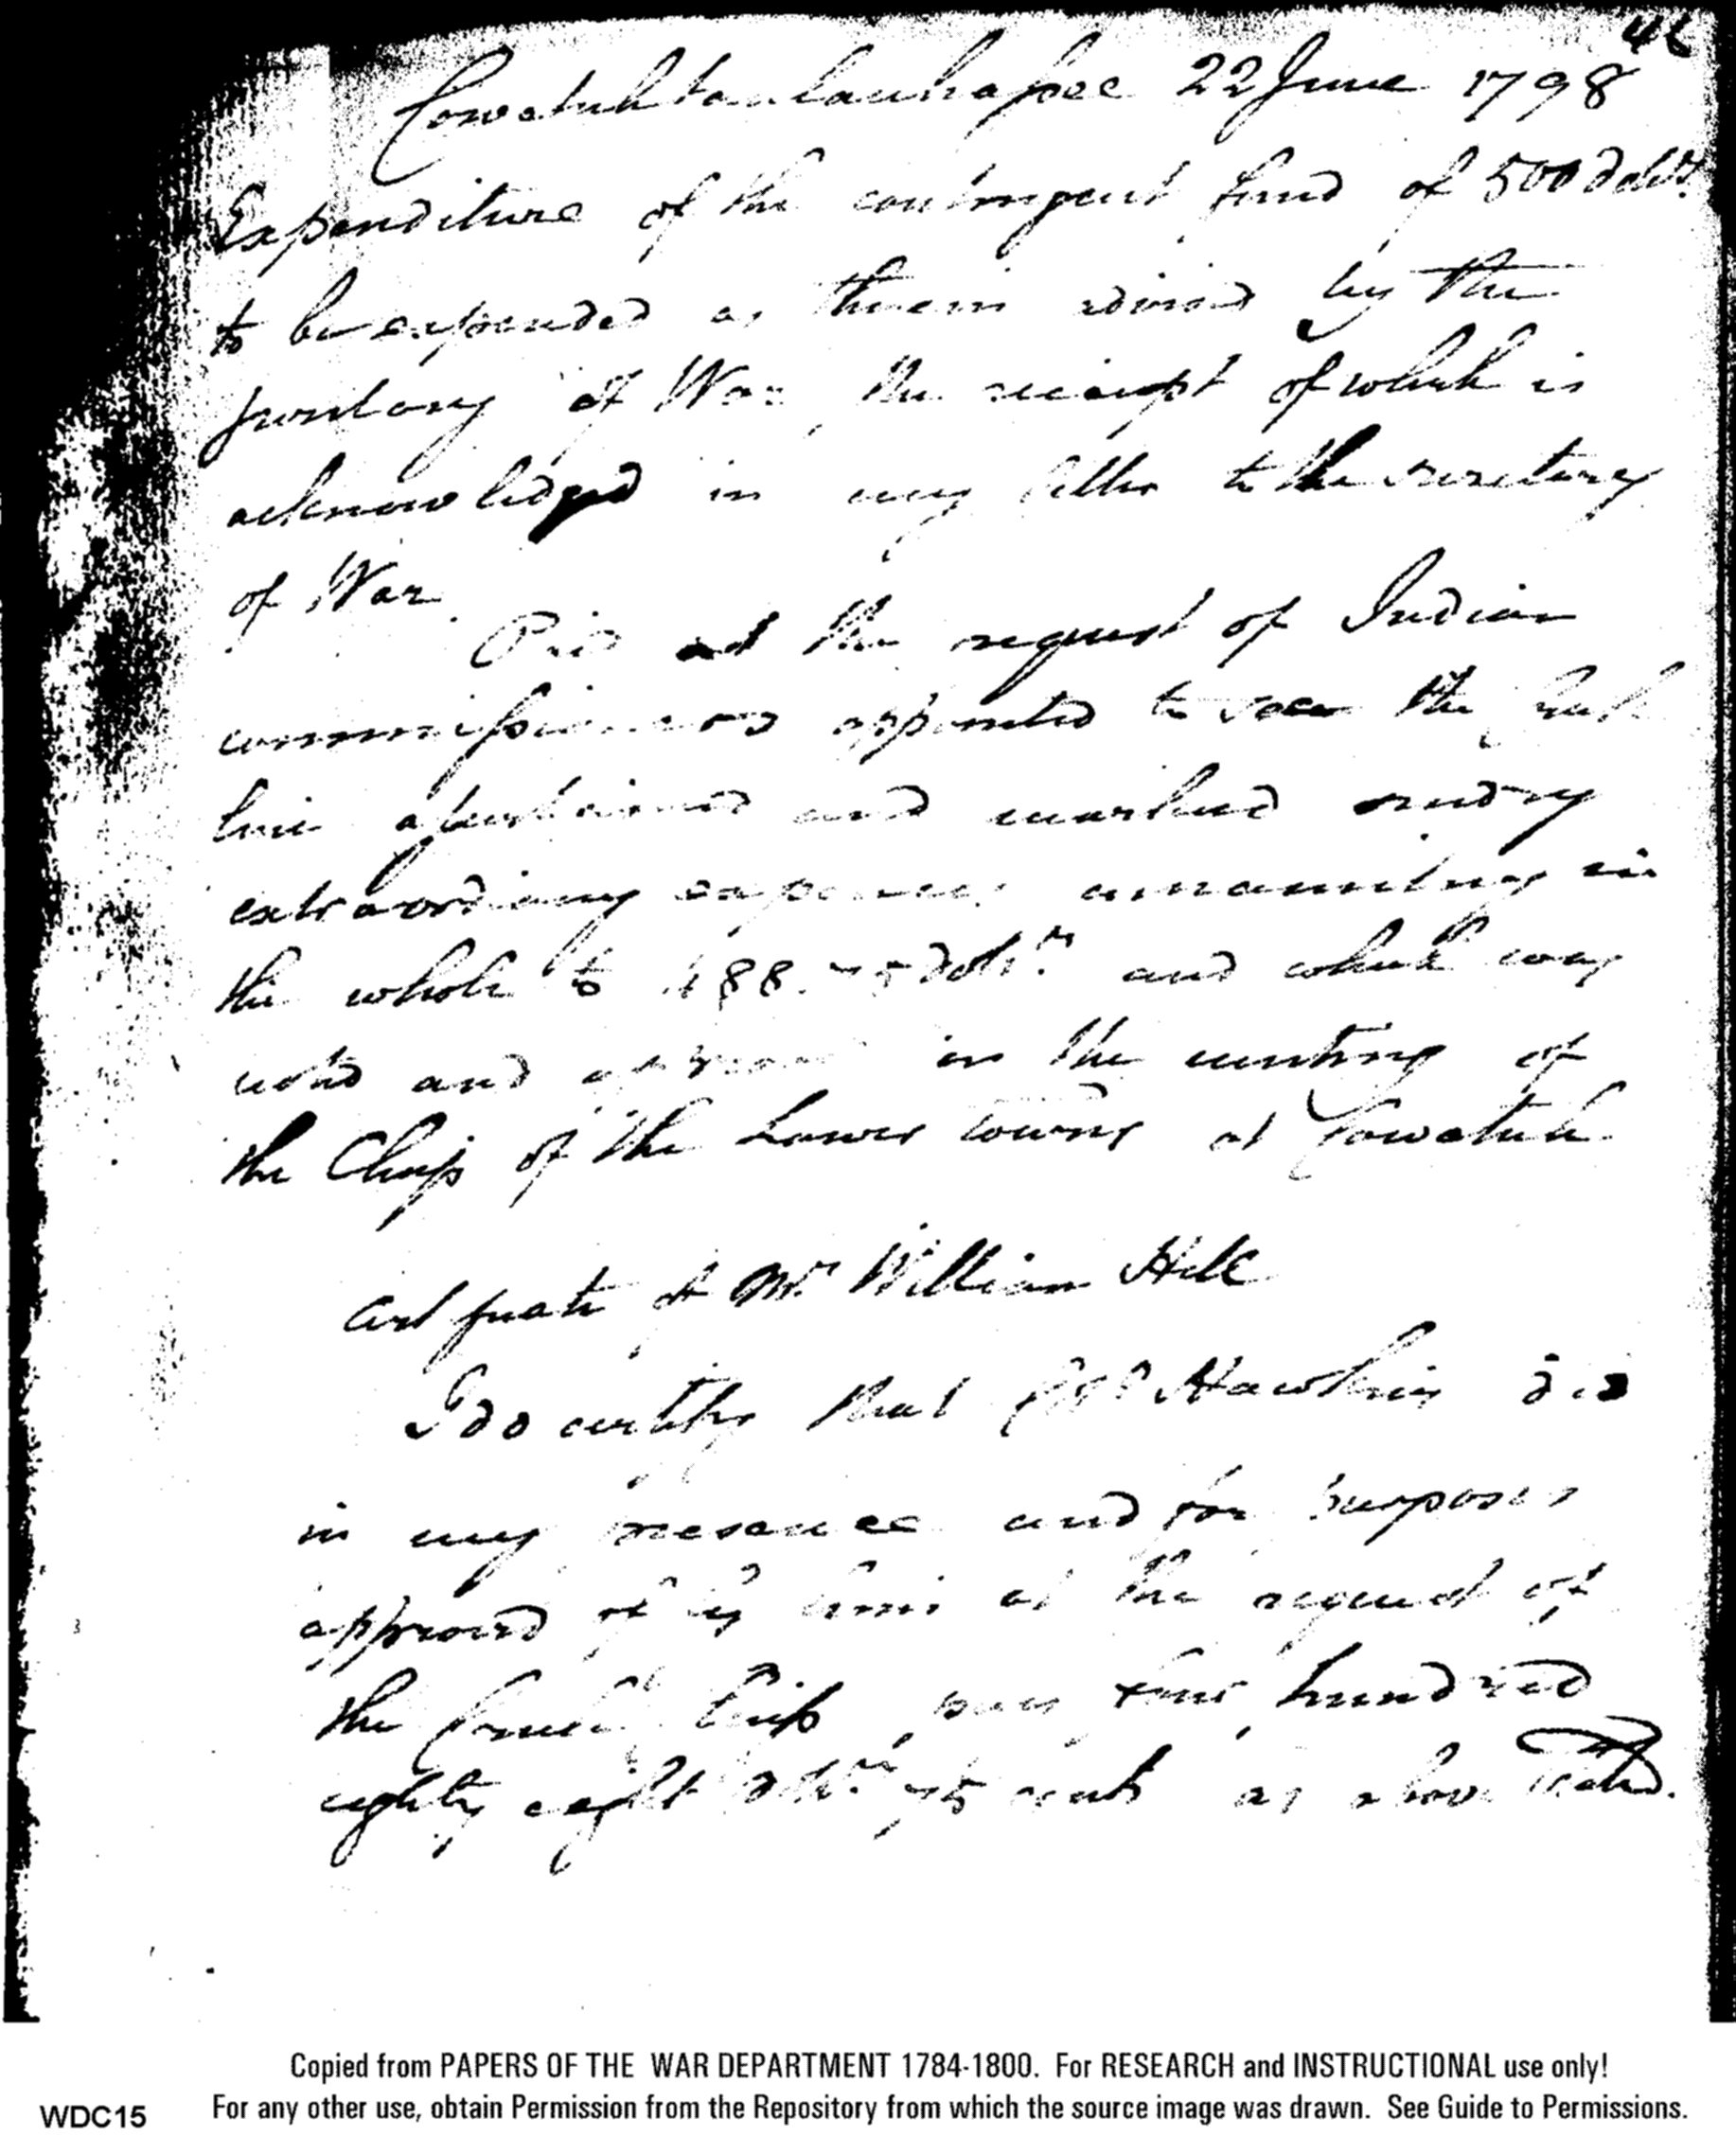 46
Cowetuhtallauhassee 22 June 1798
Expenditure of the contingent fund of 500 doll.rs
to be expended as therein advised by the
secretary of War, the receipt of which is
acknowledged in my letter to the secretary
of War.
Paid at the request of Indian
commissioners appointed to see the
line ascertained and marked sundry
extraordinary expences amounting in
the whole to 488.75 doll.rs and which was
and approved in the meeting of
the Chiefs of the Lower towns at Cowetuh
Certificate of Mr. William Hill
I do certify that Col. Hawkins did
in my presence and for purposes
approved of by him at the request of
the Creek Chiefs pay four hundred
eighty eight doll.rs 75 cents as above stated.
Copied from PAPERS OF THE WAR DEPARTMENT 1784-1800. For RESEARCH and INSTRUCTIONAL use only!
WDC15 For any other use, obtain Permission from the Repository from which the source image was drawn. See Guide to Permissions.